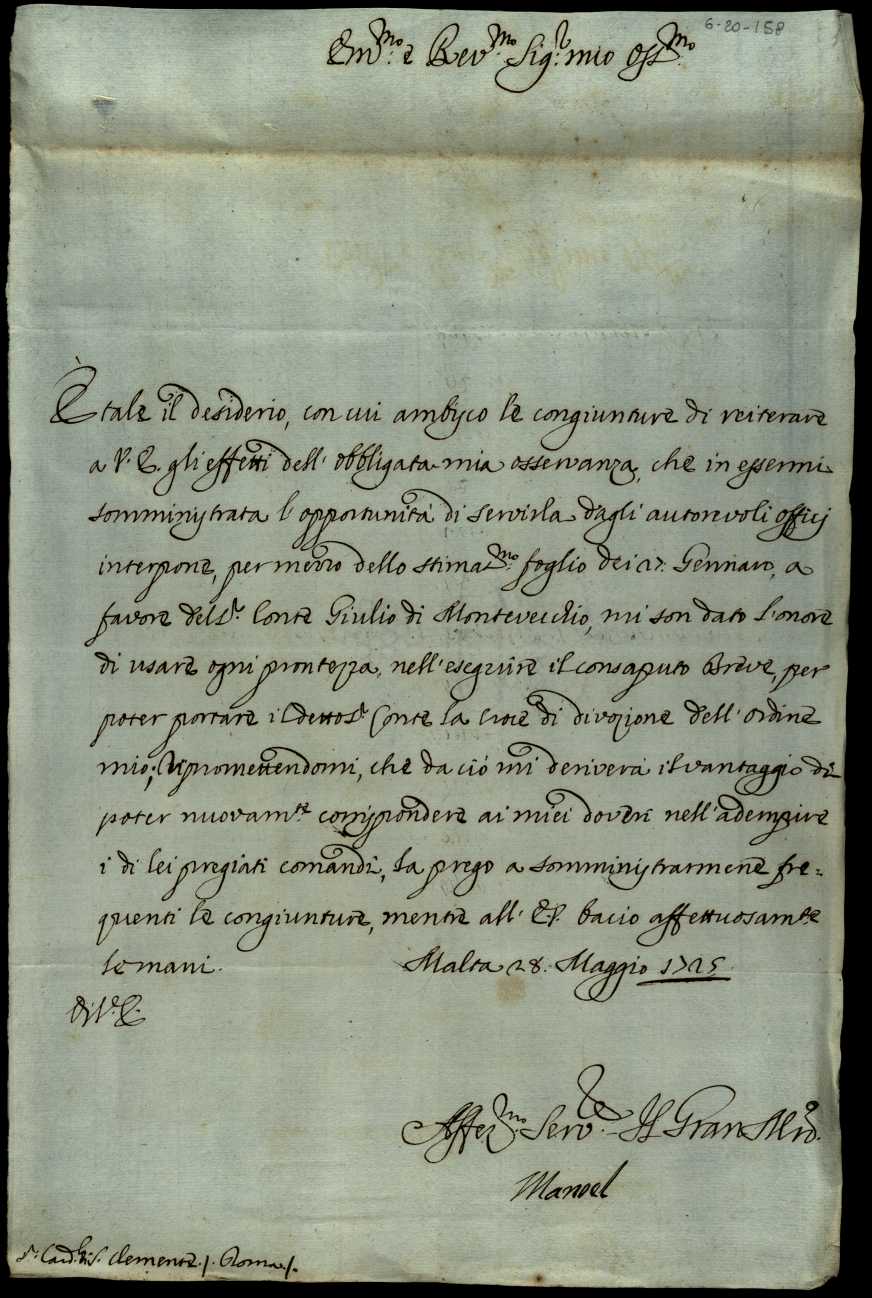 6-20-158
Em.mo e Rev.mo Sig.r mio oss.mo
È tale il desiderio, con cui ambisco le congiunture di reiterare
a V. E. gli effetti dell' obbligata mia osservanza, che in essermi
somministrata l'opportunità di servirla dagli autorevoli officij
interpone, per mezzo dello stimat.mo foglio dei 27. Gennaro, a
favore del S.r Conte Giulio di Montevecchio, mi son dato l'onore
di usare ogni prontezza, nell'eseguire il consaputo Breve, per
poter portare il detto S.r Conte la Croce di divozione dell' ordine
mio; Ripromettendomi, che da ciò mi deriverà il vantaggio di
poter nuovam.te corrispondere ai miei doveri nell'adempire
i di lei pregiati comandi, la prego a somministrarmene fre=
quenti le congiunture, mentre all' E.V. bacio affettuosam.te
le mani. Malta 28. Maggio 1725.
Di V. E.
Affez.mo Serv.re Il Gran M.ro
Manoel
S.r Card.l di S. Clemente ./. Roma ./.